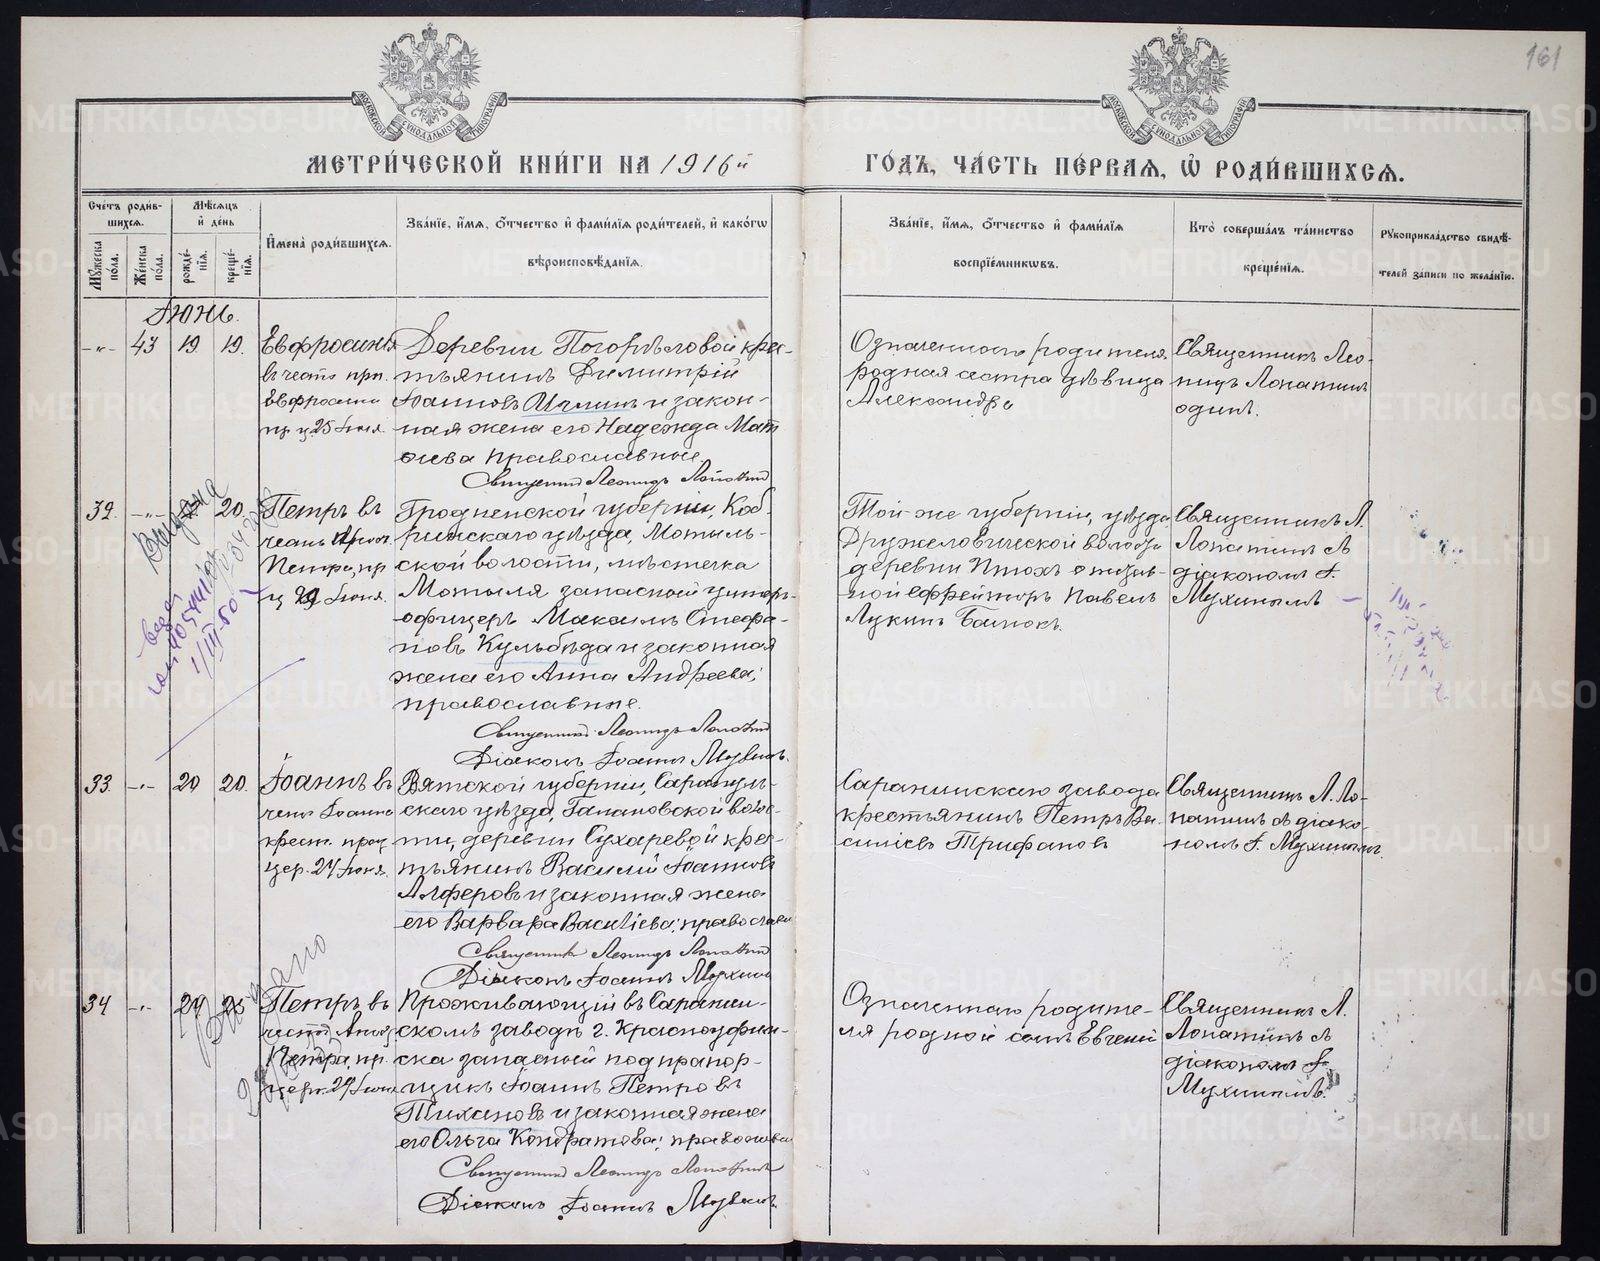 161
МОСКОВСКОЙ СѴНОДАЛЬНОЙ ТИПОГРАФІИ
МОСКОВСКОЙ СѴНОДАЛЬНОЙ ТИПОГРАФІИ
МЕТРИ́ЧЕСКОЙ КНИ́ГИ НА 1916й ГО́ДЪ, ЧА́СТЬ ПЕ́РВАѦ, Ѡ РОДИ́ВШИХСѦ.
Сче́тъ роди́в-
шихсѧ.
Мѣ́сѧцъ
и҆ де́нь
Мꙋ́жеска
по́ла.
Же́нска
по́ла.
рожде́-
нїѧ.
креще́-
нїѧ.
И҆мена̀ роди́вшихсѧ.
Зва́нїе, и҆́мѧ, ѻ҆́тчество и҆ фами́лїѧ роди́телей, и҆ како́гѡ
вѣроисповѣ́данїѧ.
Зва́нїе, и҆́мѧ, ѻ҆́тчество и҆ фами́лїѧ
воспрїе́мникѡвъ.
Кто̀ соверша́лъ та́инство
креще́нїѧ.
Рꙋкоприкла́дство свидѣ́-
телей за́писи по жела́нїю.
Іюнь.
-"- 43 19. 19. Евфросинія
въ честь прп.
Евфросиніи
пр. ц. 25 Іюня.
Деревни Погорѣловой крес-
тьянинъ Димитрій
Іоанновъ и закон-
ная жена его Надежда Мат
ѳиева православные.
Священникъ Леонидъ Лопатинъ
Означеннаго родителя
родная сестра дѣвица
Александра
Священникъ Лео-
нидъ Лопатинъ
одинъ.
32. -"- 20. Петръ въ
честь Апост.
Петра, пр.
ц 29 Іюня.
Гродненской губерніи, Коб-
ринскаго уѣзда, Мотыль-
ской волости, мѣстечка
Мотыля запасной унтеръ-
офицеръ Максимъ Стефа-
новъ Кульбѣда и законная
жена его Анна Андреева;
православные.
Священникъ Леонидъ Лопатинъ
Діаконъ Іоаннъ Мухинъ.
Той-же губерніи, уѣзда
Дружеловической волости
деревни
ефрейторъ Павелъ
Лукинъ
Священникъ Л.
Лопатинъ съ
діакономъ І.
Мухинымъ
Выдана
1/III-50
33. -"- 20 20. Іоаннъ въ
честь Іоанна
крест. прор.
цер. 24 Іюня.
Вятской губерніи, Сарапуль-
скаго уѣзда, Галановской волос-
ти, деревни Сухаревой крес-
тьянинъ Василій Іоанновъ
Алферовъ и законная жена
его Варвара Василіева; православн
Священникъ Леонидъ Лопатинъ
Діаконъ Іоаннъ Мухинъ
Саранинскаго завода
крестьянинъ Петръ Ва-
силіевъ Трифановъ
Священникъ Л. Ло-
патинъ съ діако-
номъ І. Мухинымъ.
34 -"- Петръ въ
честь Апост
Петра, пр.
церк. 29 Іюня
Проживающій въ Саранин-
скомъ заводѣ г. Красноуфим-
ска запасный подпрапор-
щикъ Іоаннъ Петровъ
Тихановъ и законная жена
его Ольга Кондратова; православн
Священникъ Леонидъ Лопатинъ
Діаконъ Іоаннъ Мухинъ.
Означеннаго родите-
ля родной сынъ Евгеній
Священникъ Л.
Лопатинъ съ
діакономъ І.
Мухинымъ.
METRIKI.GASO-URAL.RU